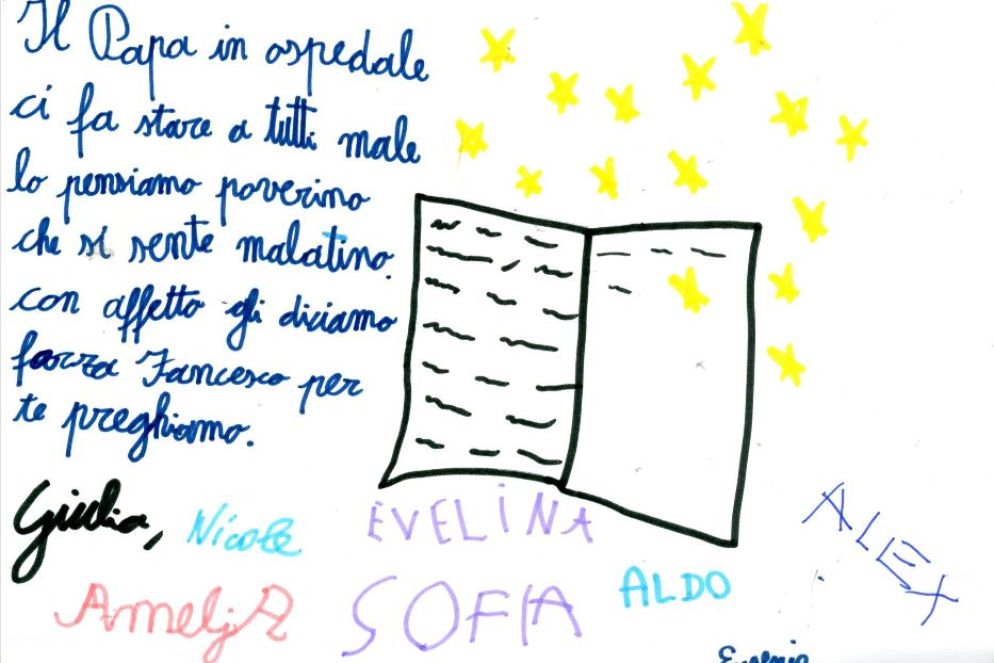 Il Papa in ospedale
ci fa stare a tutti male
lo pensiamo poverino
che si sente malatino.
con affetto gli diciamo
forza Fancesco per
te preghiamo.
Giulia, Nicole EVELINA
ALEX
AmeljA SOFIA ALDO